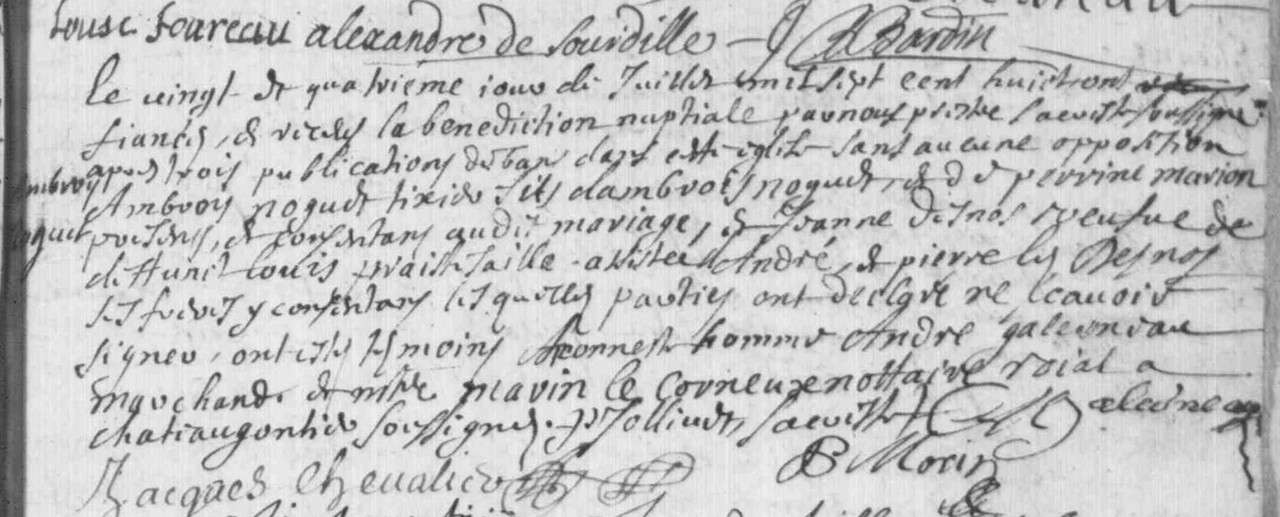 Louise Foureau alexandre de Sourdille R Bardin
Le vingt et quatrieme jour de Juillet mil sept cent huict ont
fiancés, et receu la benediction nuptiale par nous prestre sacriste soussigné
apres trois publications de bans dans cette eglise sans aucune opposition
Ambroys noguet tixier fils dambrois noguet, et de perrine marion
presens, et consentans audit mariage, et Jeanne desnos veufue de
deffunct Louis assistée d'André, et pierre les Desnos
ses freres y consentans lesquelles parties ont declaré ne scavoir
signer, ont estés tesmoins honneste homme André galerneau
marchand et mtre marin le Corneux nottaire roial a
chateaugontier soussignes. Jollivet, sacriste Galerneau
Jacques Chevalier P Morin
Ambroys
noguet